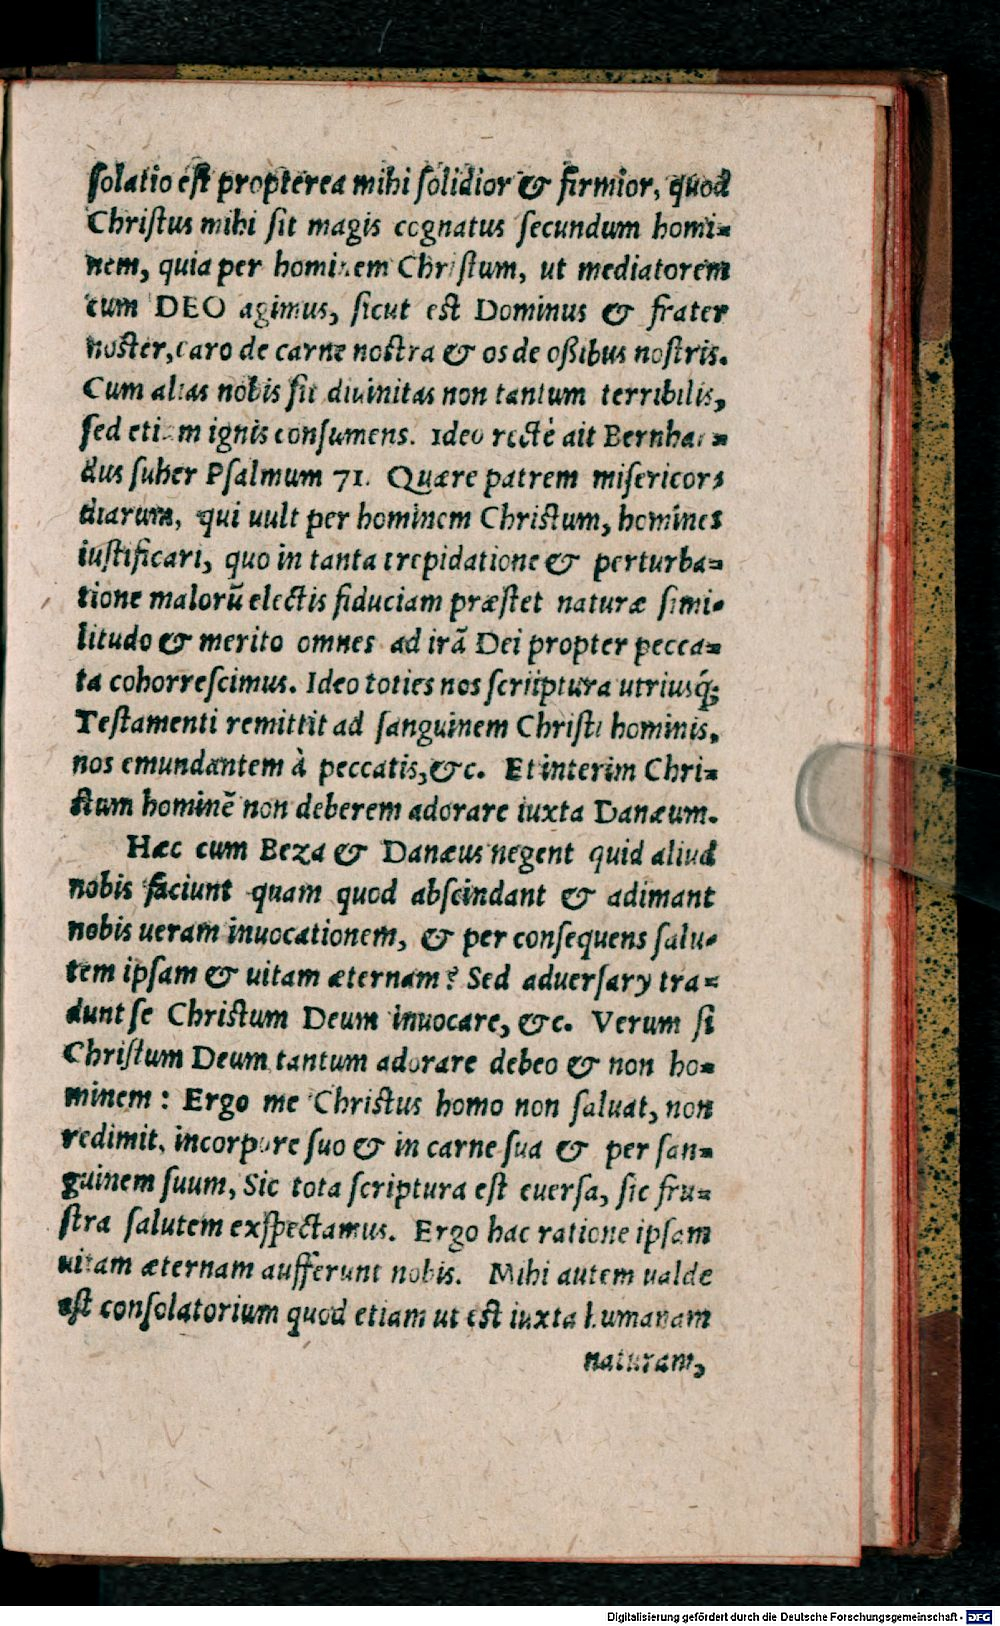 ſolatio eſt propterea mihi ſolidior & firmior, quod
Chriſtus mihi ſit magis cognatus ſecundum homi=
nem, quia per hominem Chriſtum, ut mediatorem
cum DEO agimus, ſicut est Dominus & frater
noster, caro de carne nostra & os de oßibus noſtris.
Cum alias nobis ſit diuinitas non tantum terribilis,
ſed etiam ignis conſumens. Ideo rectè ait Bernhar=
dus ſuper Pſalmum 71. Quære patrem miſericor=
diarum, qui uult per hominem Christum, homines
iuſtificari, quo in tanta trepidatione & perturba=
tione malorũ electis fiduciam præſtet naturæ ſimi=
litudo & merito omnes ad irã Dei propter pecca=
ta cohorreſcimus. Ideo toties nos ſcriiptura utriusq́;
Teſtamenti remittit ad ſanguinem Chriſti hominis,
nos emundantem à peccatis, &c. Et interim Chri=
ſtum hominẽ non deberem adorare iuxta Danæum.
Hæc cum Beza & Danæus negent quid aliud
nobis faciunt quam quod abſcindant & adimant
nobis ueram inuocationem, & per conſequens ſalu=
tem ipſam & uitam æternam? Sed adverſary tra=
dunt ſe Christum Deum inuocare, &c. Verum ſi
Chriſtum Deum tantum adorare debeo & non ho=
minem: Ergo me Christus homo non ſaluat, non
redimit, in corpore ſuo & in carne ſua & per ſan=
guinem ſuum, Sic tota ſcriptura est euerſa, ſic fru=
ſtra ſalutem exſpectamus. Ergo hac ratione ipſam
uitam æternam aufferunt nobis. Mihi autem ualde
est conſolatorium quod etiam ut est iuxta humanam
naturam,
Digitalisierung gefördert durch die Deutsche Forschungsgemeinschaft - DFG